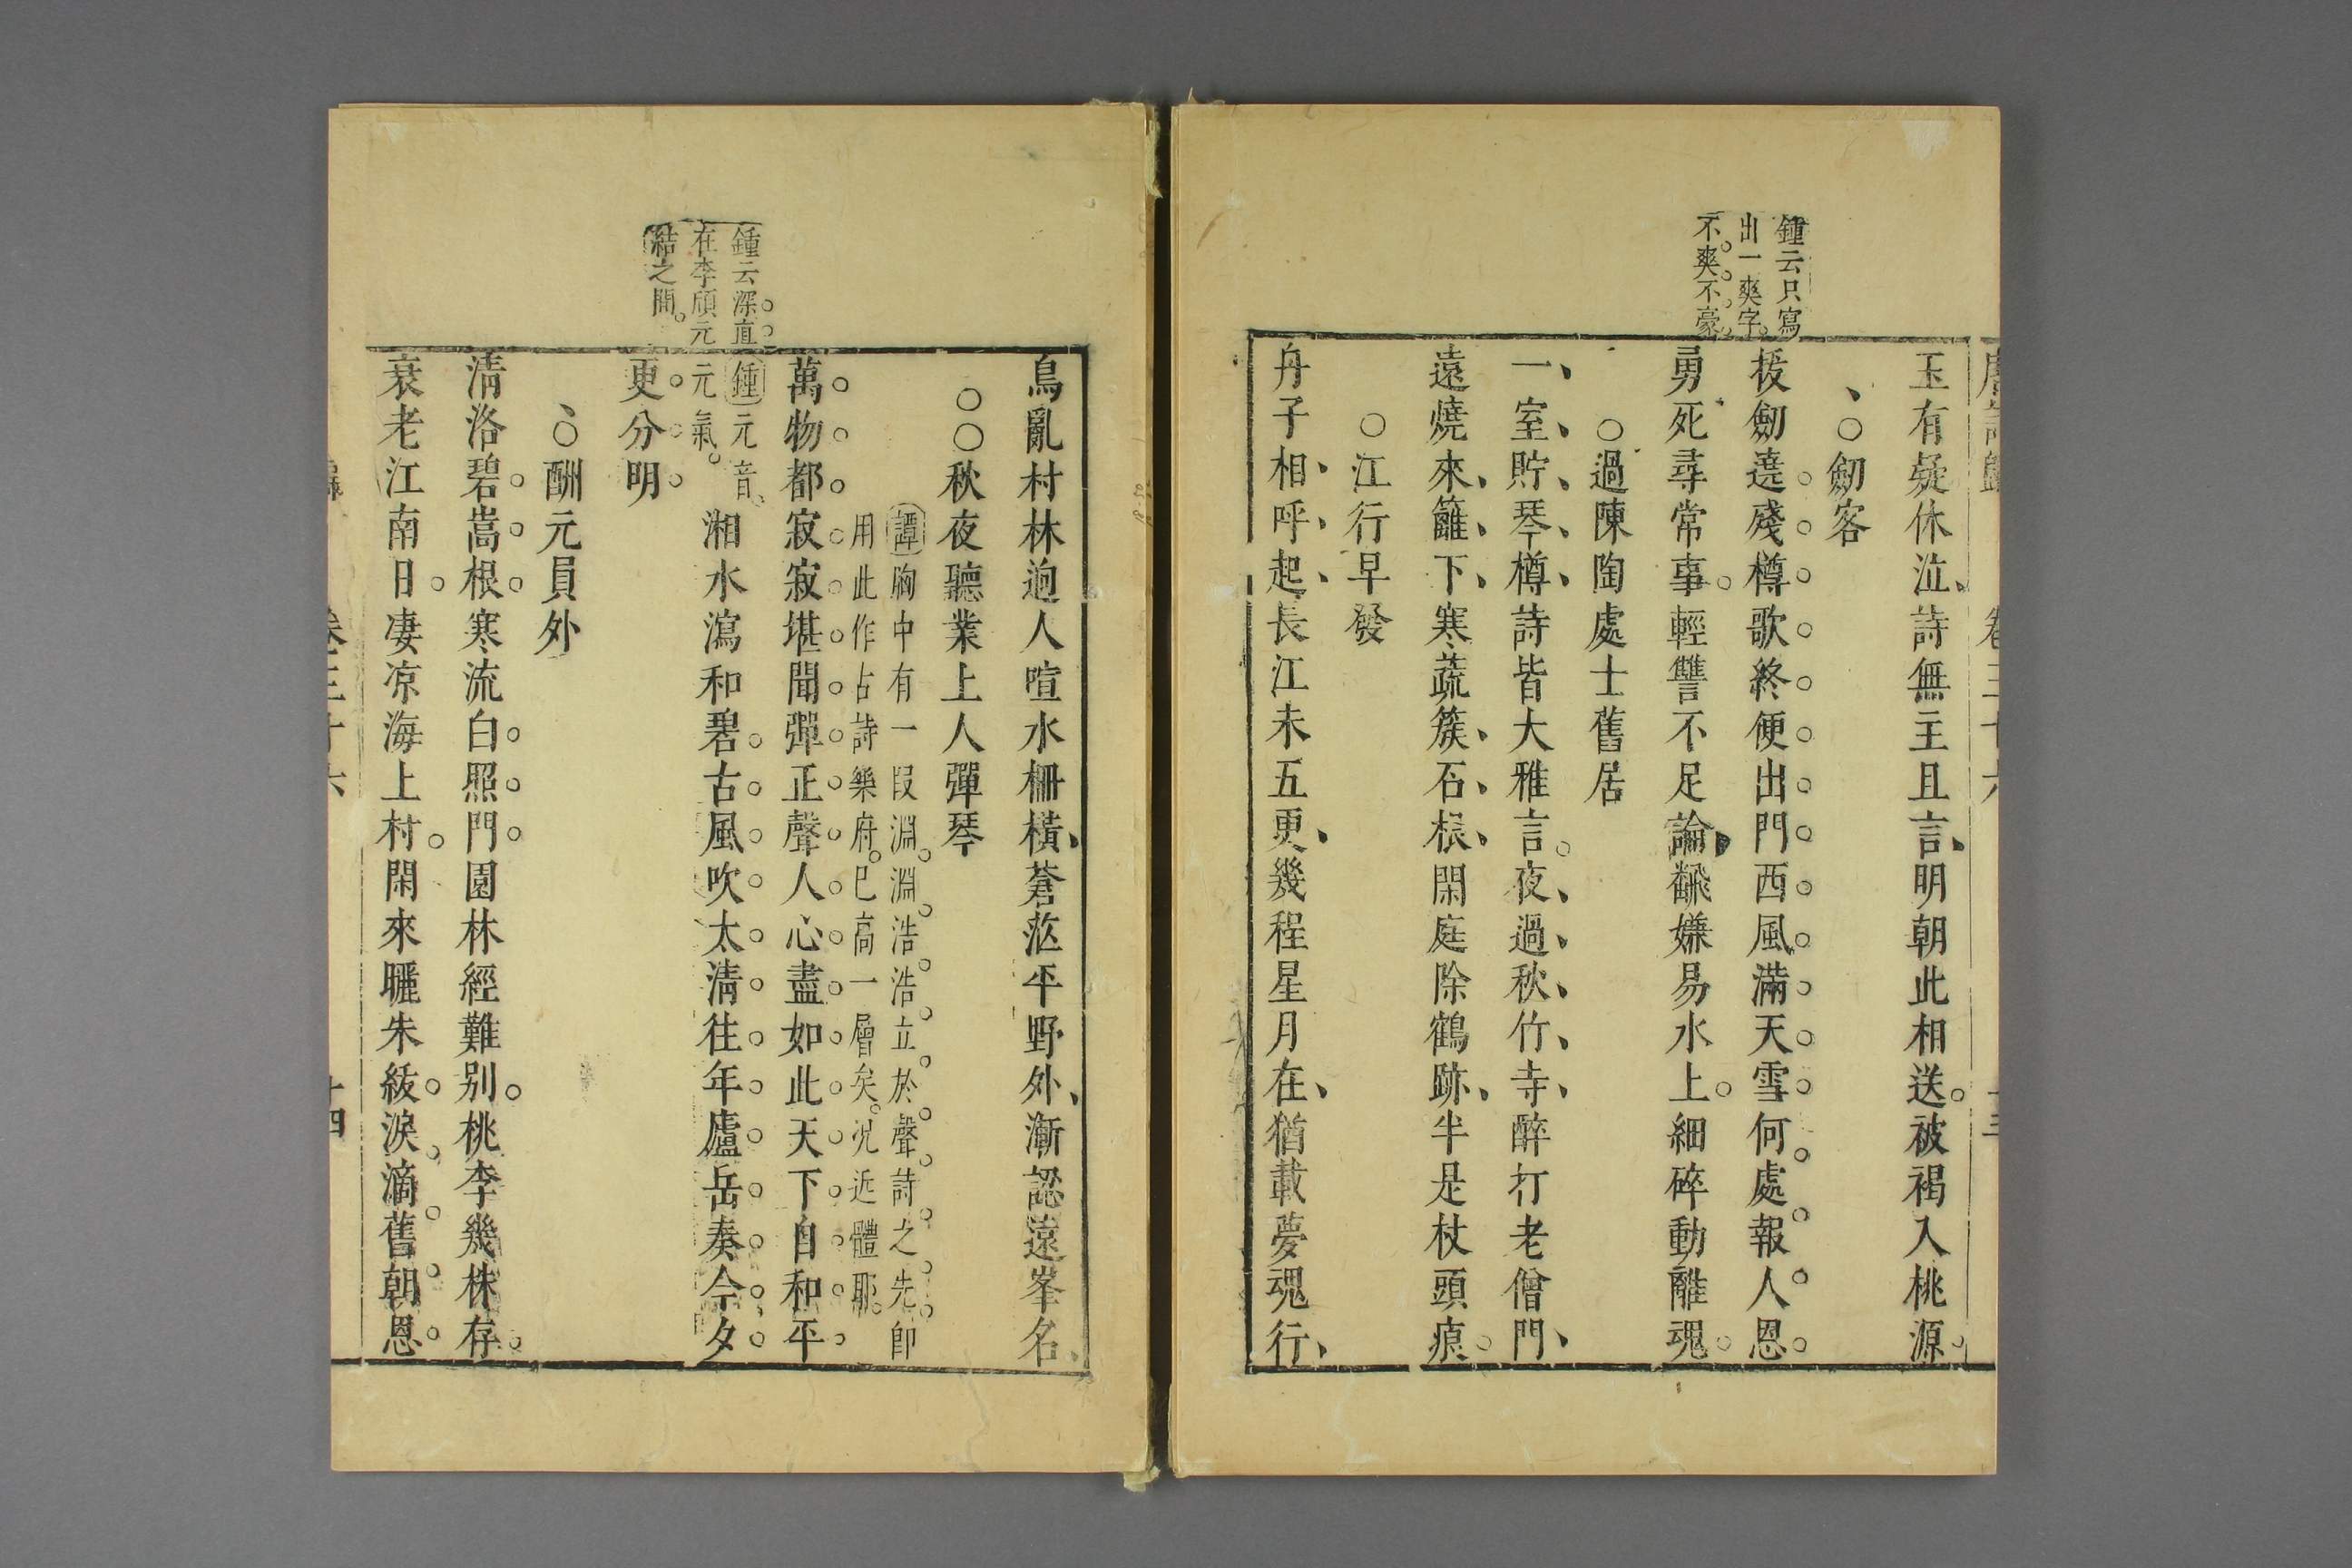 玉有疑休泣詩無主且言明朝此相送被褐入桃源
、○劒客
鍾云只寫
出一爽字
不爽不豪
拔劒遶殘樽歌終便出門西風滿天雪何處報人恩
勇死尋常事輕讐不足論翻嫌易水上細碎動離魂
○過陳陶處士舊居
一室貯琴樽詩皆大雅言夜過秋竹寺醉打老僧門
遠燒來籬下寒蔬簇石根閑庭除鶴跡半是杖頭痕
○江行早發
舟子相呼起長江未五更幾程星月在猶載夢魂行
鳥亂村林逈人喧水柵橫蒼茫平野外漸認遠峯名
○○秋夜聽業上人彈琴
譚胸中有一段淵淵浩浩立於聲詩之先即
用此作古詩樂府已高一層矣况近體耶
鍾云深直
在李頎元
結之間
萬物都寂寂堪聞彈正聲人心盡如此天下自和平
鍾元音
元氣
湘水瀉和碧古風吹太清往年廬岳奏今夕
更分明
、○酬元員外
清洛碧嵩根寒流白照門園林經難别桃李幾株存
衰老江南日凄凉海上村閑來曬朱紱淚滴舊朝恩